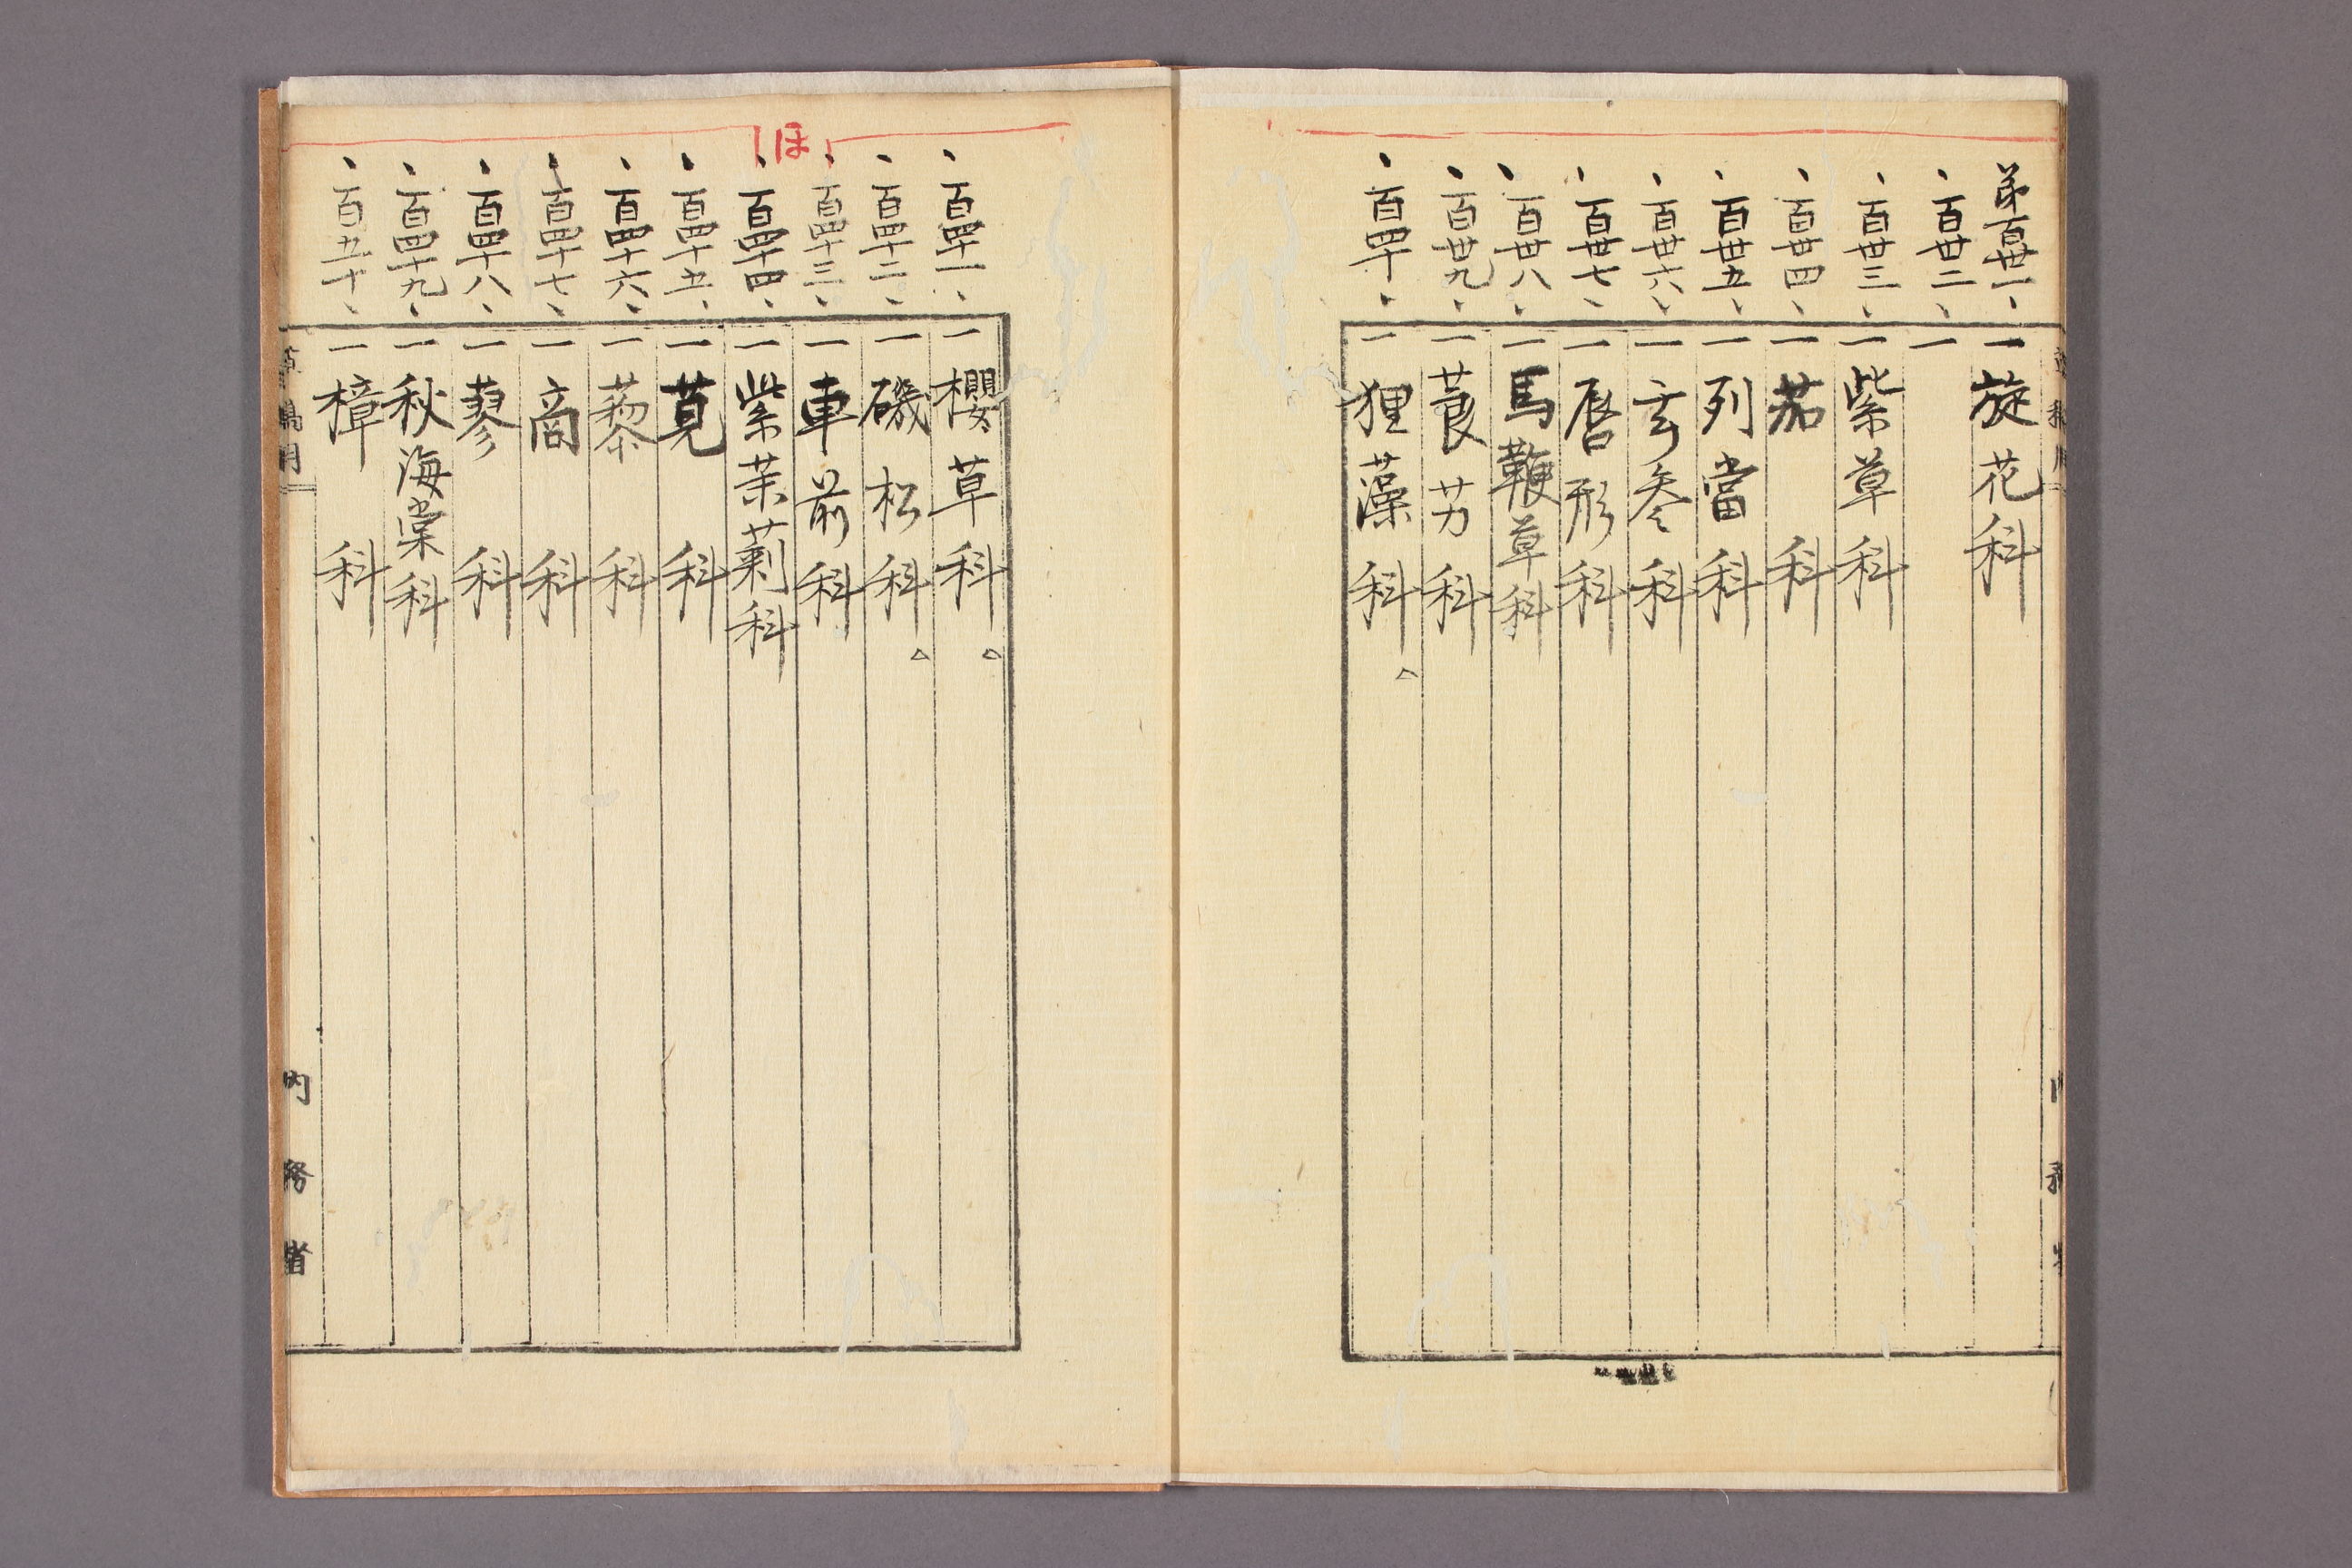 第百卅一、一旋花科
、百卅二、一
、百卅三、一紫草科
、百卅四、一茄科
、百卅五、一列當科
、百卅六、一玄参科
、百卅七、一唇形科
、百卅八、一馬鞭草科
、百卅九、一莨艻科
、百四十、一狸藻科△
ほ
、百四十一、一櫻草科△
、百四十二、一磯松科△
、百四十三、一車前科
、百四十四、一紫茉莉科
、百四十五、一莧科
、百四十六、一藜科
、百四十七、一商科
、百四十八、一蓼科
、百四十九、一秋海棠科
、百五十、一樟科
内務省